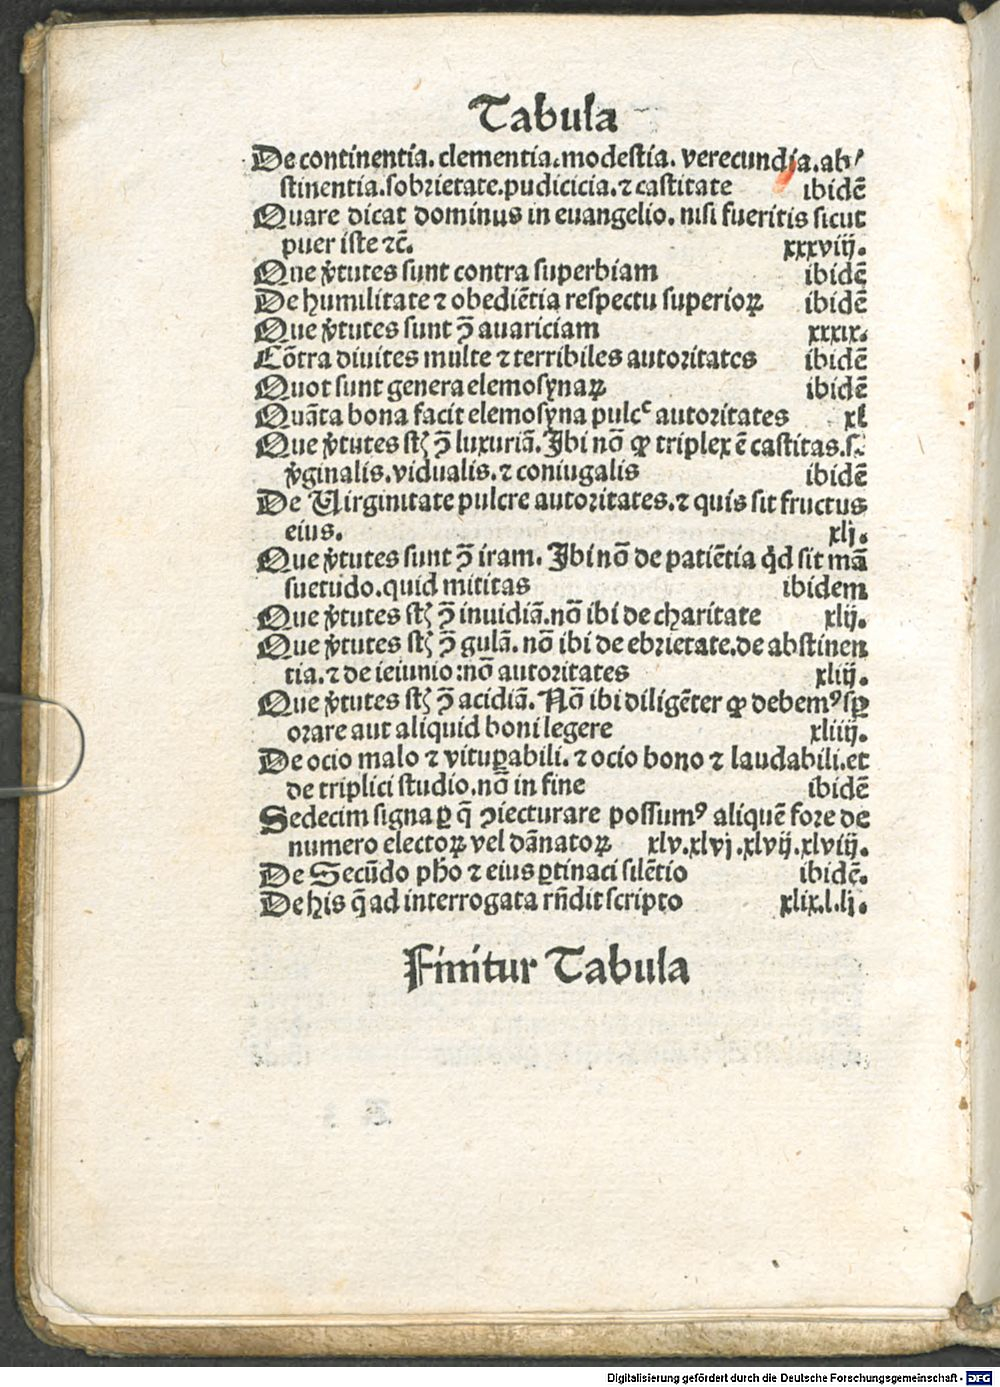 Tabula
De continentia. clementia. modestia. verecundia. ab⸗
stinentia. sobrietate. pudicicia. ⁊ castitate ibidē
Quare dicat dominus in euangelio. nisi fueritis sicut
puer iste ⁊c̄. xxxviij.
Que v̓tutes sunt contra superbiam ibidē
De humilitate ⁊ obediētia respectu superioꝝ ibidē
Que v̓tutes sunt ꝯ̄ auariciam xxxix.
Cōtra diuites multe ⁊ terribiles autoritates ibidē
Quot sunt genera elemosynaꝝ ibidē
Quāta bona facit elemosyna pulcᶜ autoritates xl
Que v̓tutes st̄ ꝯ̄ luxuriā. Ibi nō ꝙ triplex ē castitas. s.
v̓ginalis. vidualis. ⁊ coniugalis ibidē
De Virginitate pulcre autoritates. ⁊ quis sit fructus
eius. xlj.
Que v̓tutes sunt ꝯ̄ iram. Ibi nō de patiētia qd̓ sit mā
suetudo. quid mititas ibidem
Que v̓tutes st̄ ꝯ̄ inuidiā. nō ibi de charitate xlij.
Que v̓tutes st̄ ꝯ̄ gulā. nō ibi de ebrietate. de abstinen
tia. ⁊ de ieiunio: nō autoritates xliij.
Que v̓tutes st̄ ꝯ̄ acidiā. Nō ibi diligēter ꝙ debemꝰ sꝑ
orare aut aliquid boni legere xliiij.
De ocio malo ⁊ vituꝑabili. ⁊ ocio bono ⁊ laudabili. et
de triplici studio. nō in fine ibidē
Sedecim signa ꝑ q̄ ꝯiecturare possumꝰ aliquē fore de
numero electoꝝ vel dānatoꝝ xlv. xlvj. xlvij. xlviij.
De Secūdo ph̄o ⁊ eius ꝑtinaci silētio ibidē.
De his q̄ ad interrogata rn̄dit scripto xlix. l. lj.
Finitur Tabula
Digitalisierung gefördert durch die Deutsche Forschungsgemeinschaft - DFG